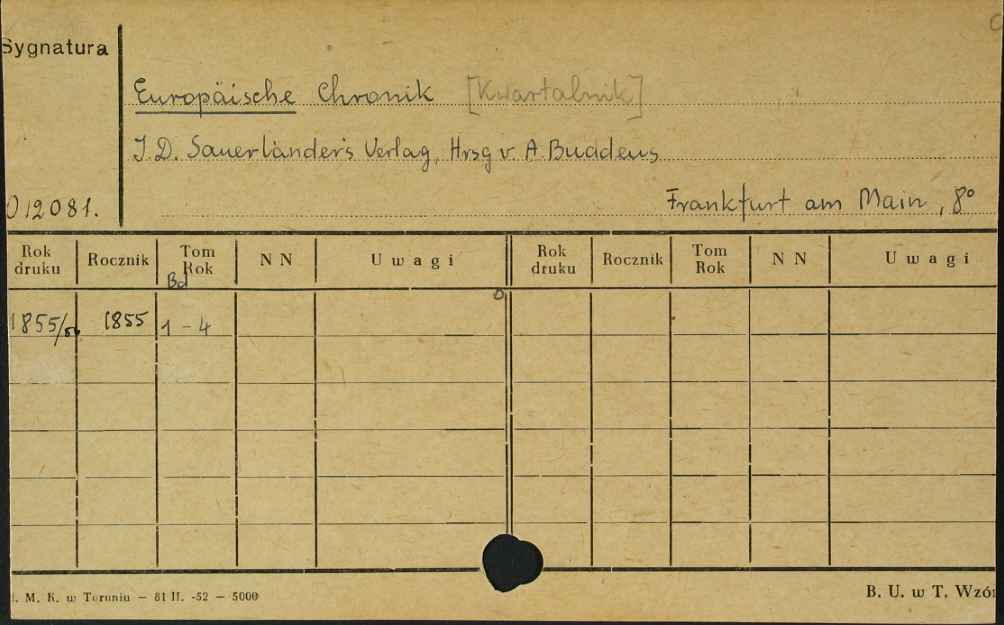 Sygnatura
Europäische Chronik [Kwartalnik]
J.D. Sauerländer's Verlag, Hrsg v. A. Buddeus
012081.
Frankfurt am Main, 8°
Rok druku Rocznik Tom Rok NN Uwagi Rok druku Rocznik Tom Rok NN Uwagi
Bd
1855/56 1855 1-4
M. K. w Toruniu — 81 II. -52 — 5000
B. U. w T. Wzór